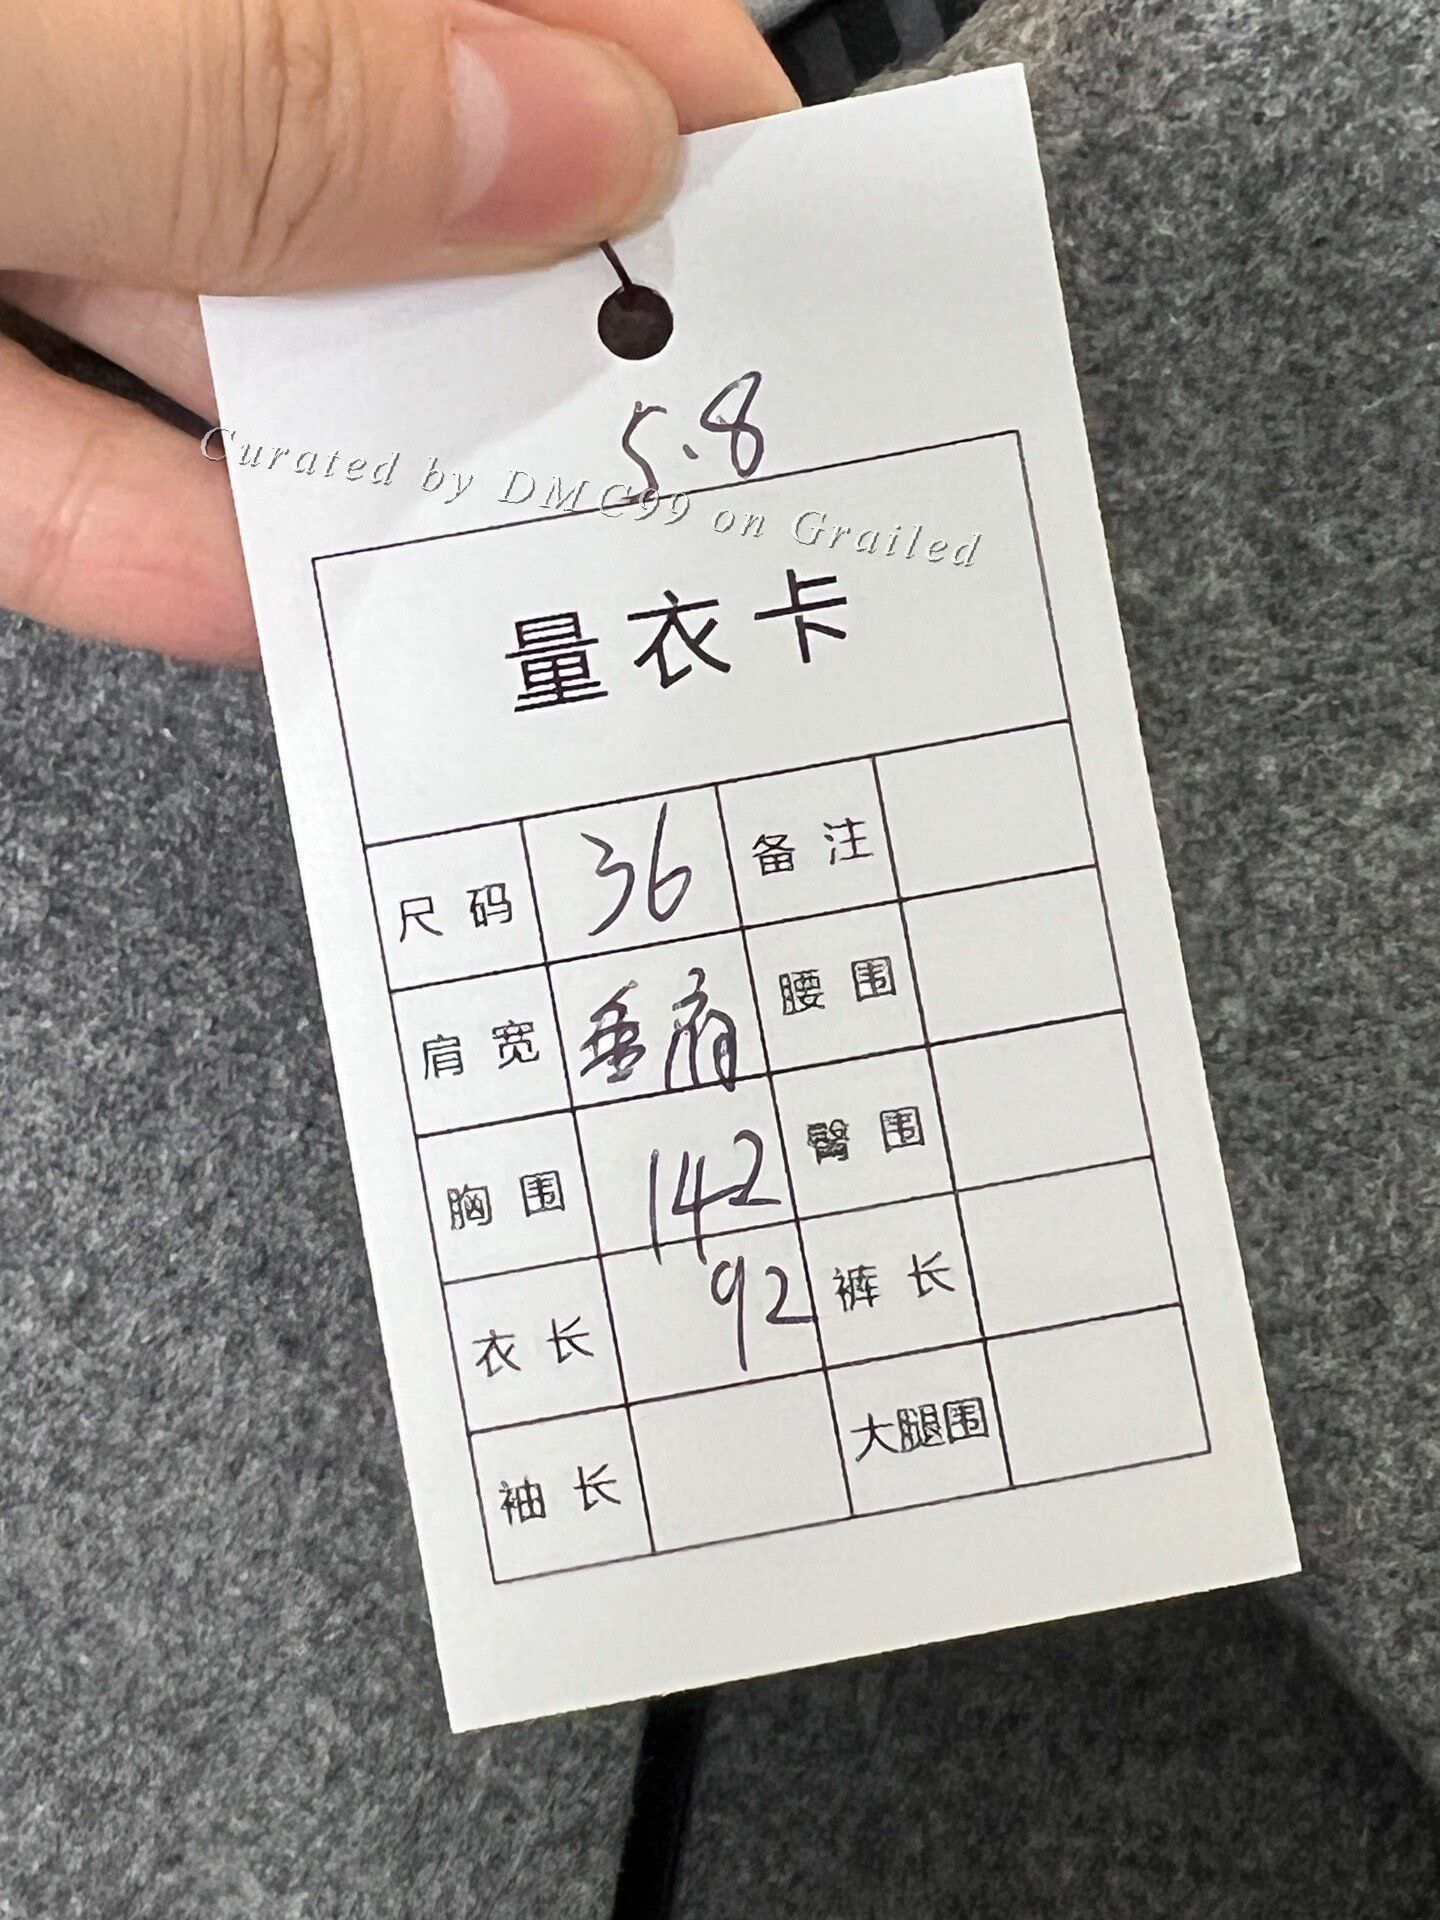 5.8
Curated by DMC99 on Grailed
量衣卡
尺码 36 备注
肩宽 垂肩 腰围
胸围 142 臀围
衣长 92 裤长
袖长 大腿围